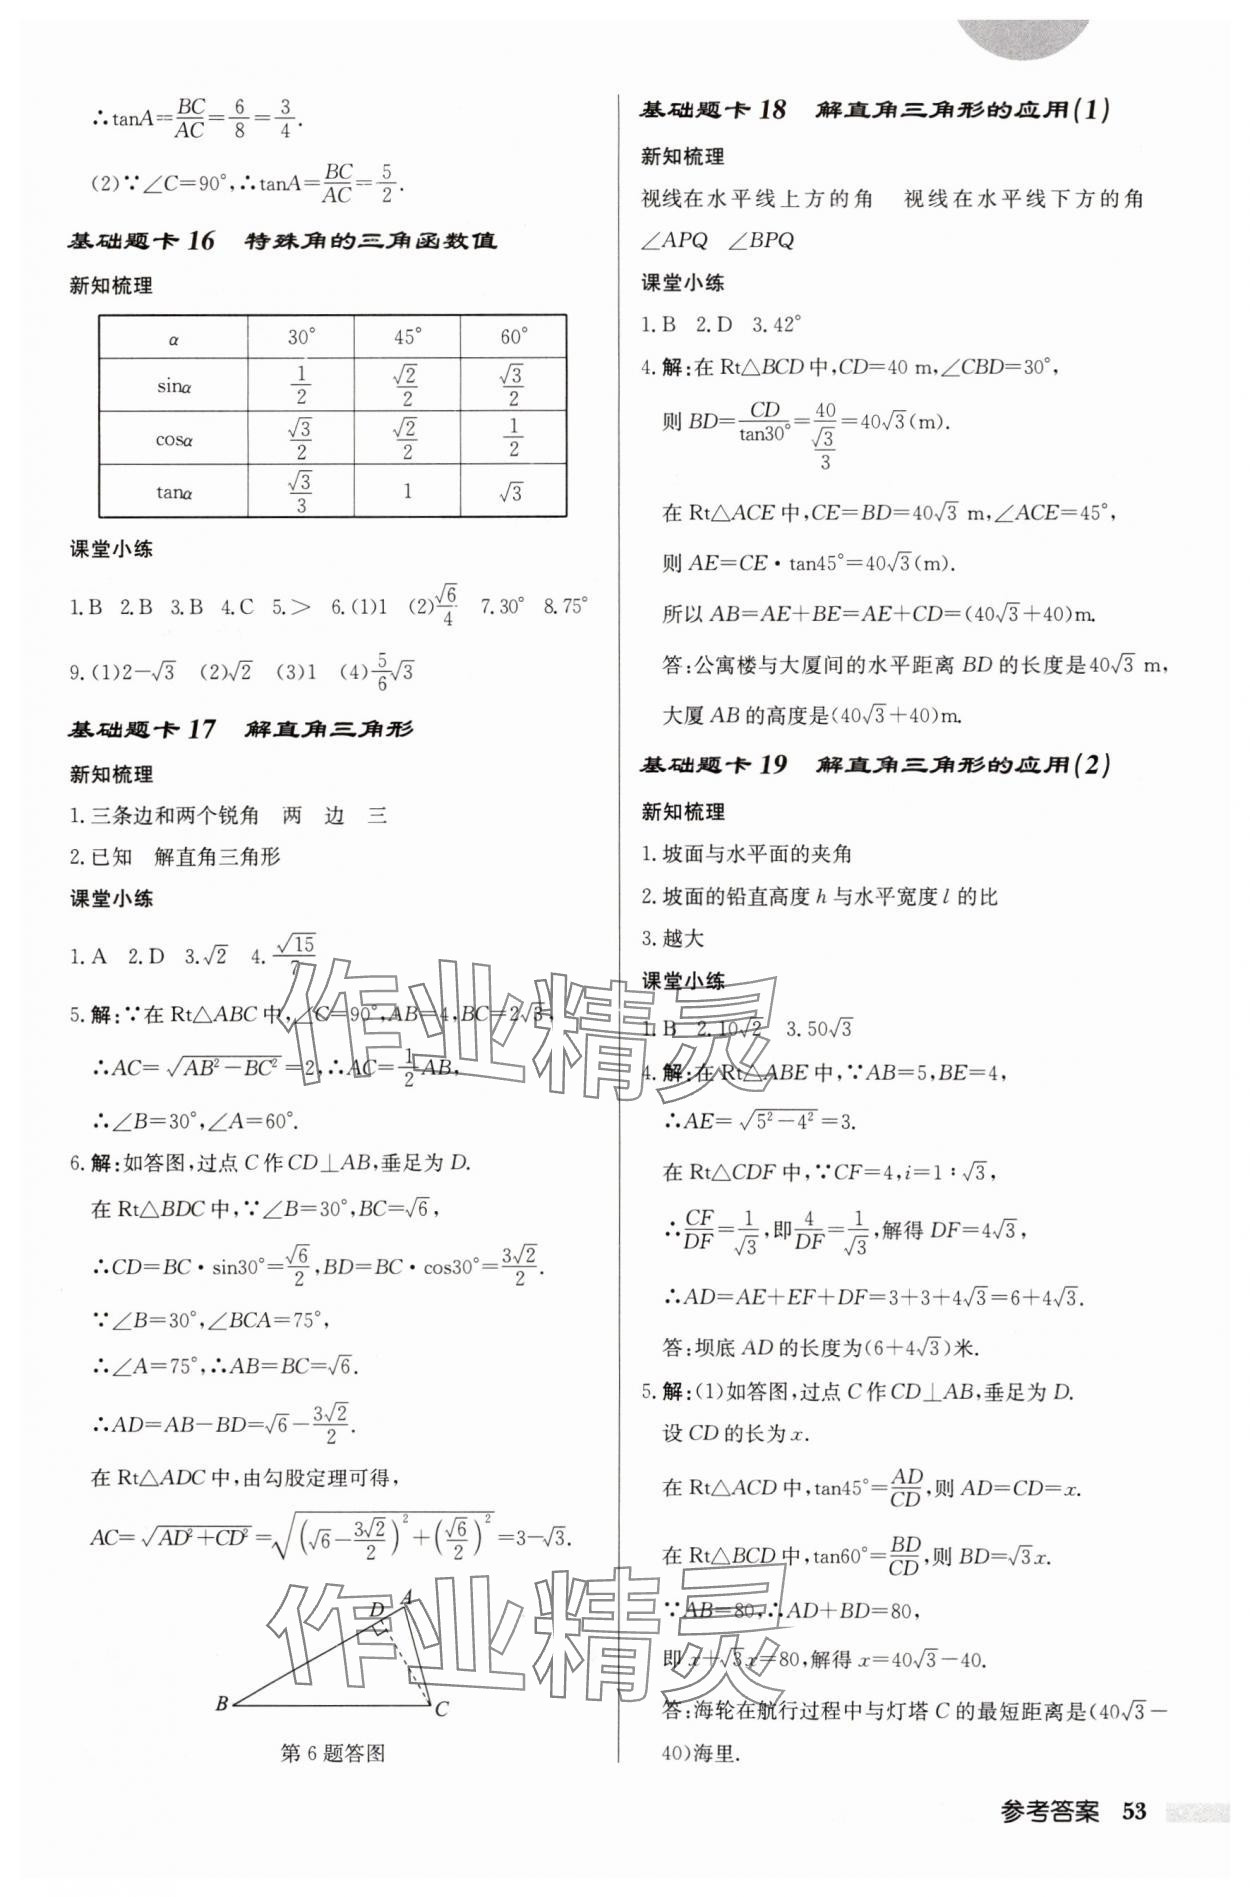 ∴tanA=BC/AC=6/8=3/4.
(2)∵∠C=90°,∴tanA=BC/AC=5/2.
基础题卡 16 特殊角的三角函数值
新知梳理
α 30° 45° 60°
sinα 1/2 √2/2 √3/2
cosα √3/2 √2/2 1/2
tanα √3/3 1 √3
课堂小练
1.B 2.B 3.B 4.C 5.> 6.(1)1 (2)√6/4 7.30° 8.75°
9.(1)2-√3 (2)√2 (3)1 (4)5/6√3
基础题卡 17 解直角三角形
新知梳理
1.三条边和两个锐角 两 边 三
2.已知 解直角三角形
课堂小练
1.A 2.D 3.√2 4.√15/7
5.解:∵在 Rt△ABC 中,∠C=90°,AB=4,BC=2√3,
∴AC=√(AB²-BC²)=2,∴AC=1/2AB,
∴∠B=30°,∠A=60°.
6.解:如答图,过点 C 作 CD⊥AB,垂足为 D.
在 Rt△BDC 中,∵∠B=30°,BC=√6,
∴CD=BC·sin30°=√6/2,BD=BC·cos30°=3√2/2.
∵∠B=30°,∠BCA=75°,
∴∠A=75°,∴AB=BC=√6.
∴AD=AB-BD=√6-3√2/2.
在 Rt△ADC 中,由勾股定理可得,
AC=√(AD²+CD²)=√((√6-3√2/2)²+(√6/2)²)=3-√3.
A
D
B
C
第 6 题答图
基础题卡 18 解直角三角形的应用(1)
新知梳理
视线在水平线上方的角 视线在水平线下方的角
∠APQ ∠BPQ
课堂小练
1.B 2.D 3.42°
4.解:在 Rt△BCD 中,CD=40 m,∠CBD=30°,
则 BD=CD/tan30°=40/(√3/3)=40√3(m).
在 Rt△ACE 中,CE=BD=40√3 m,∠ACE=45°,
则 AE=CE·tan45°=40√3(m).
所以 AB=AE+BE=AE+CD=(40√3+40)m.
答:公寓楼与大厦间的水平距离 BD 的长度是40√3 m,
大厦 AB 的高度是(40√3+40)m.
基础题卡 19 解直角三角形的应用(2)
新知梳理
1.坡面与水平面的夹角
2.坡面的铅直高度 h 与水平宽度 l 的比
3.越大
课堂小练
1.B 2.10√2 3.50√3
4.解:在 Rt△ABE 中,∵AB=5,BE=4,
∴AE=√(5²-4²)=3.
在 Rt△CDF 中,∵CF=4,i=1∶√3,
∴CF/DF=1/√3,即4/DF=1/√3,解得 DF=4√3,
∴AD=AE+EF+DF=3+3+4√3=6+4√3.
答:坝底 AD 的长度为(6+4√3)米.
5.解:(1)如答图,过点 C 作 CD⊥AB,垂足为 D.
设 CD 的长为 x.
在 Rt△ACD 中,tan45°=AD/CD,则 AD=CD=x.
在 Rt△BCD 中,tan60°=BD/CD,则 BD=√3x.
∵AB=80,∴AD+BD=80,
即 x+√3x=80,解得 x=40√3-40.
答:海轮在航行过程中与灯塔 C 的最短距离是(40√3-
40)海里.
参考答案 53
作业精灵
作业精灵